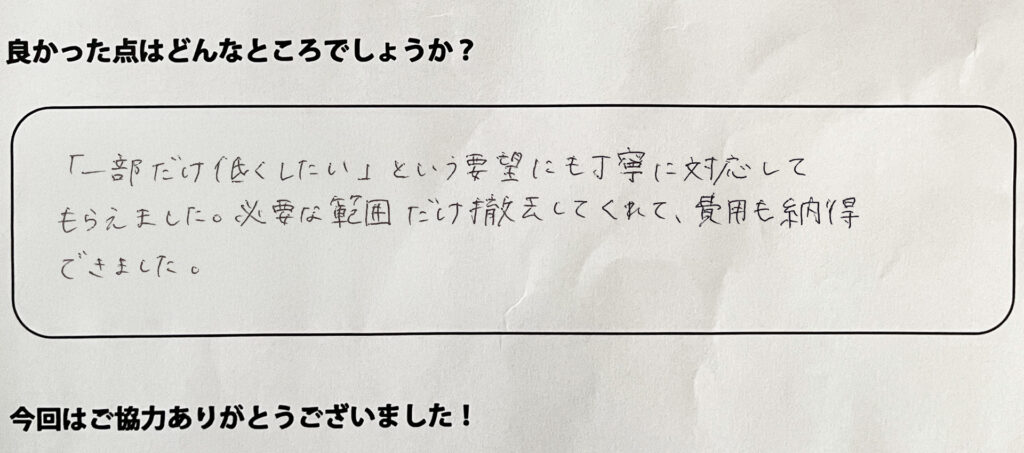 良かった点はどんなところでしょうか？
「一部だけ低くしたい」という要望にも丁寧に対応して
もらえました。必要な範囲だけ撤去してくれて、費用も納得
できました。
今回はご協力ありがとうございました！